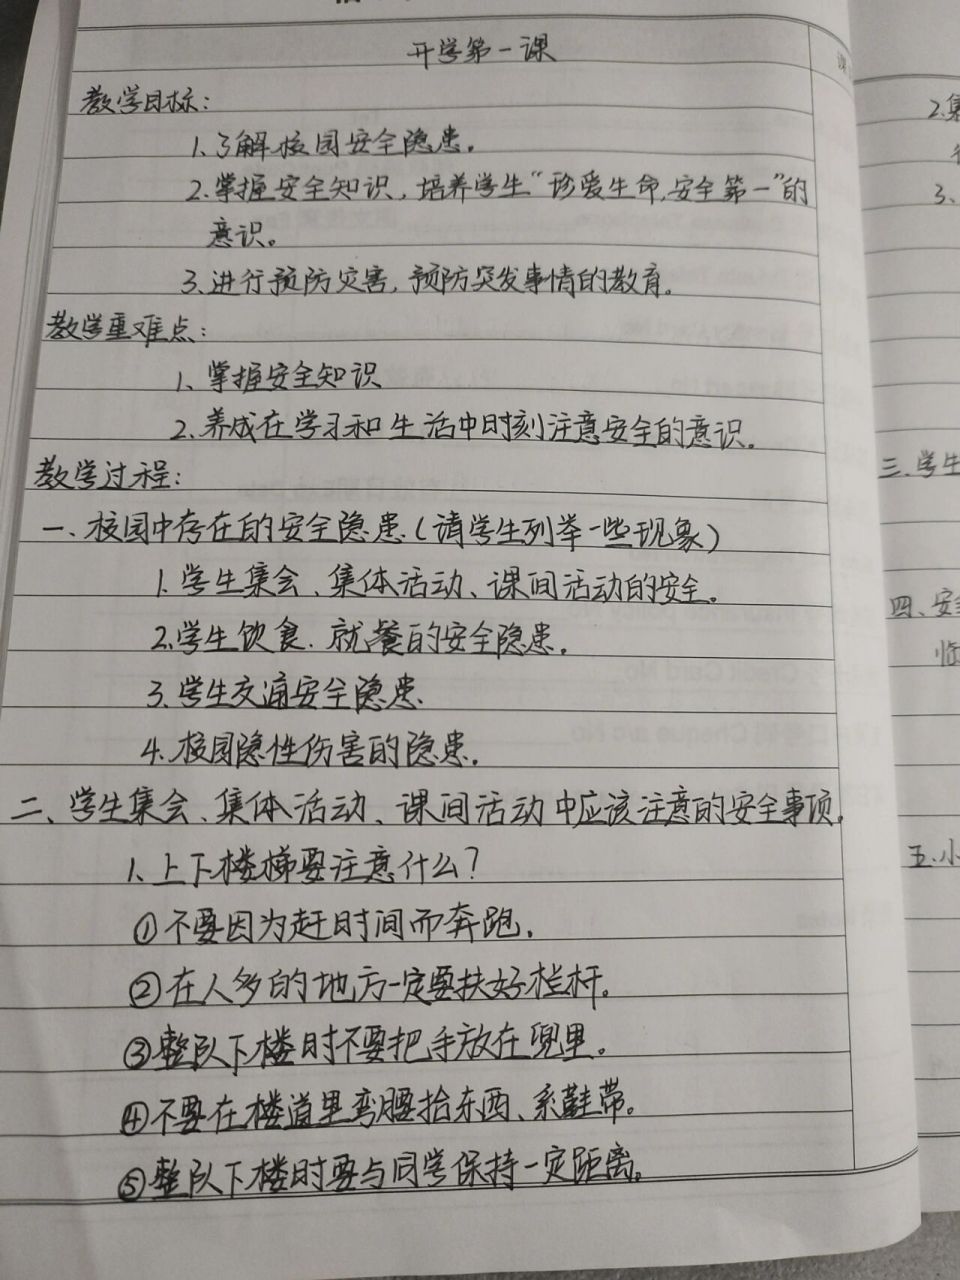 开学第一课
教学目标：
1.了解校园安全隐患。
2.掌握安全知识，培养学生“珍爱生命,安全第一”的
意识。
3.进行预防灾害，预防突发事情的教育。
教学重难点：
1、掌握安全知识
2.养成在学习和生活中时刻注意安全的意识。
教学过程：
一、校园中存在的安全隐患(请学生列举一些现象)
1.学生集会、集体活动、课间活动的安全。
2.学生饮食.就餐的安全隐患。
3.学生交通安全隐患.
4.校园隐性伤害的隐患。
二、学生集会、集体活动、课间活动中应该注意的安全事项.
1、上下楼梯要注意什么?
①不要因为赶时间而奔跑.
②在人多的地方一定要扶好栏杆。
③整队下楼时不要把手放在兜里。
④不要在楼道里弯腰拾东西、系鞋带。
⑤整队下楼时要与同学保持一定距离。
2.集
3、
三.学生
四、安
临
五.小